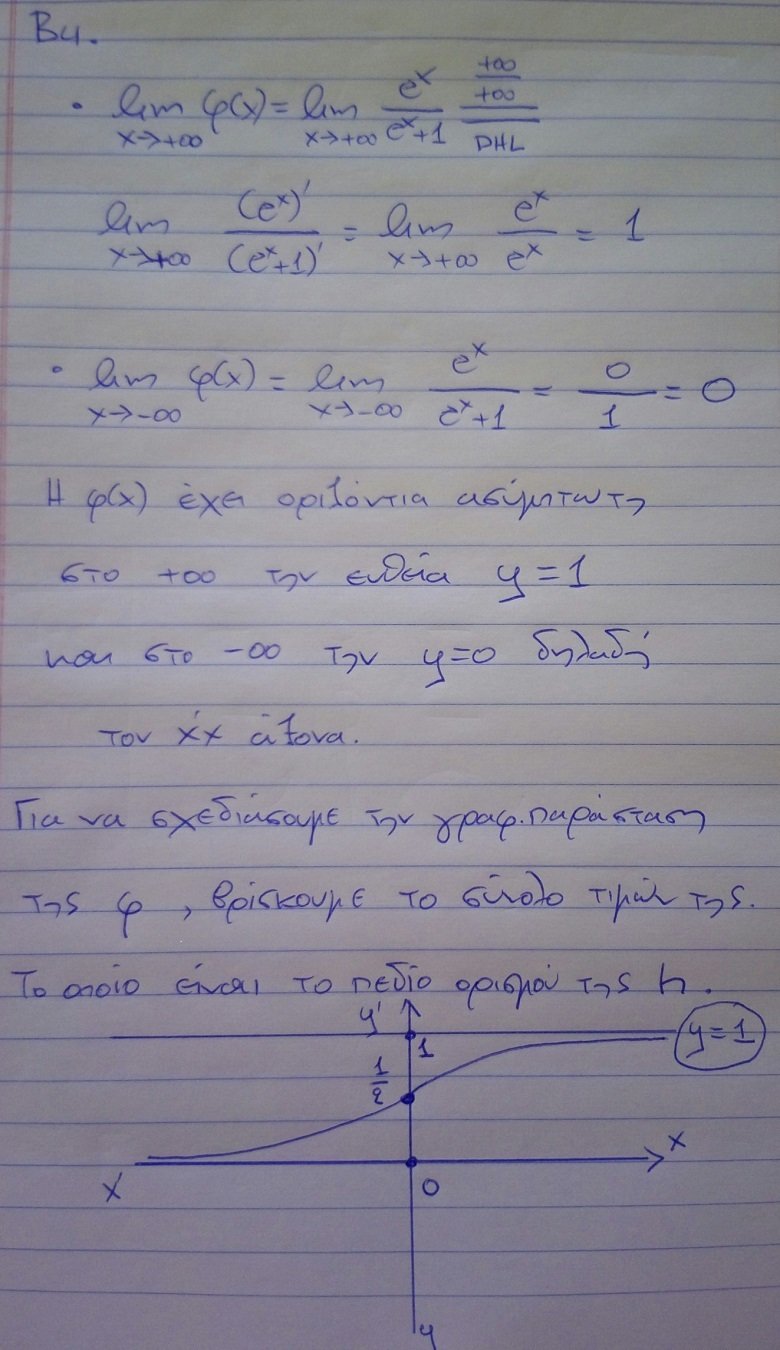 B4.
• lim x→+∞ φ(x) = lim x→+∞ e^x/(e^x+1) =(+∞/+∞, DHL)
lim x→+∞ (e^x)'/(e^x+1)' = lim x→+∞ e^x/e^x = 1
• lim x→-∞ φ(x) = lim x→-∞ e^x/(e^x+1) = 0/1 = 0
Η φ(x) έχει οριζόντια ασύμπτωτη
στο +∞ την ευθεία y = 1
και στο -∞ την y=0 δηλαδή
τον x'x άξονα.
Για να σχεδιάσουμε την γραφ. παράσταση
της φ, βρίσκουμε το σύνολο τιμών της.
Το οποίο είναι το πεδίο ορισμού της h.
y'
y=1
1
1/2
x
x'
0
y